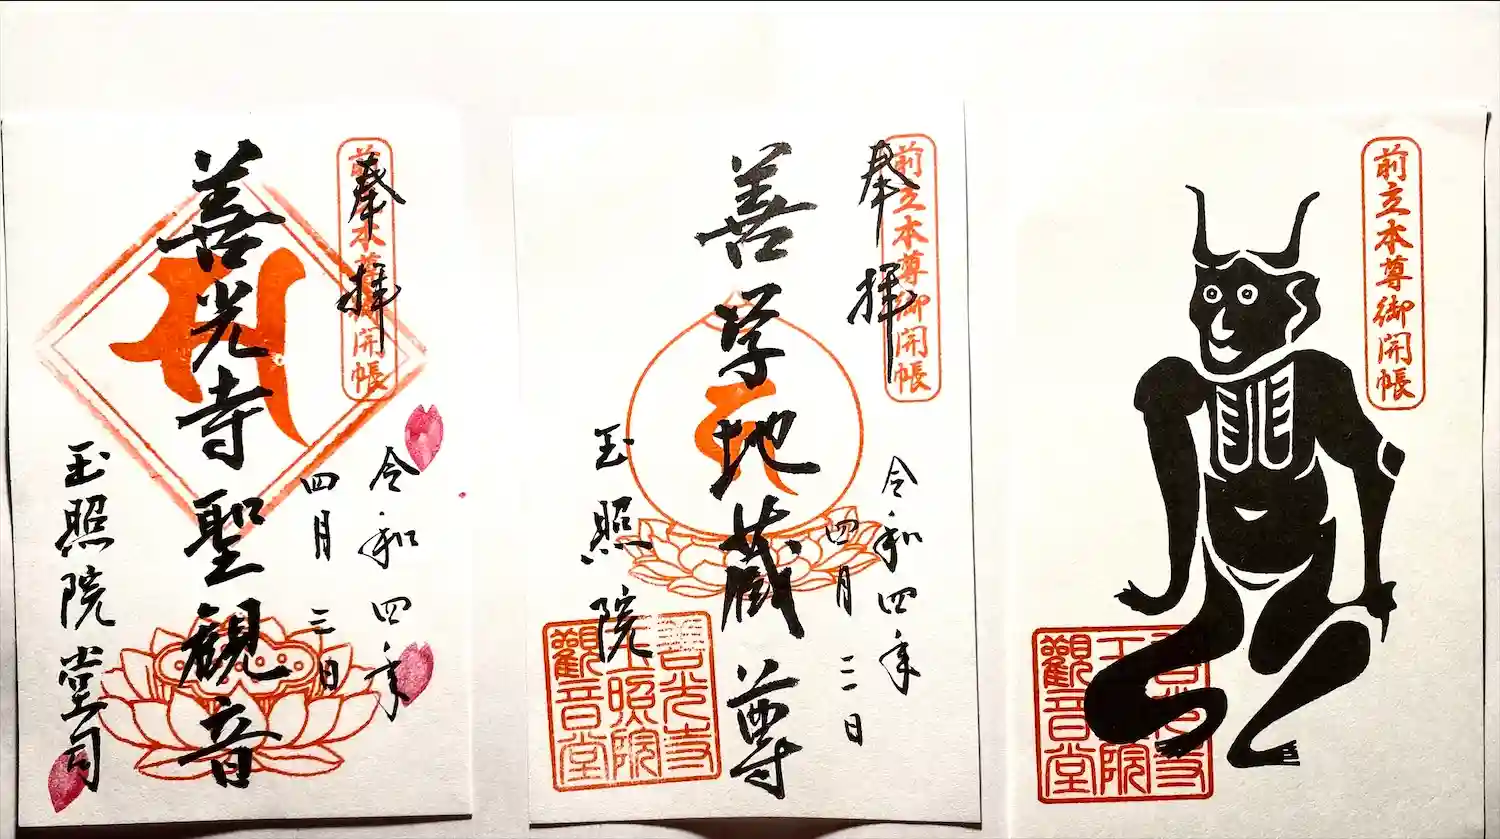 前立本尊御開帳
奉拝
令和四年
四月三日
善光寺聖観音
玉照院堂司
前立本尊御開帳
奉拝
令和四年
四月三日
善学地蔵尊
玉照院
善光寺
玉照院
觀音堂
前立本尊御開帳
善光寺
玉照院
觀音堂